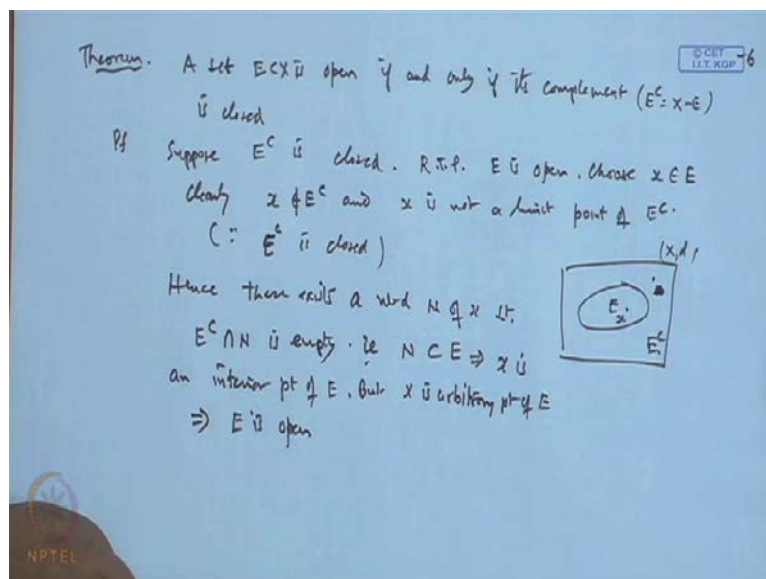 Theorem. A set E⊂X is open if and only if its complement (Eᶜ = X-E)
is closed
Pf Suppose Eᶜ is closed. R.T.P. E is open. Choose x ∈ E
Clearly x ∉ Eᶜ and x is not a limit point of Eᶜ.
(∵ Eᶜ is closed)
Hence there exists a nbd N of x st.
Eᶜ ∩ N is empty. ie N ⊂ E ⇒ x is
an interior pt of E. But x is arbitrary pt of E
⇒ E is open
(X,d)
E
x
Eᶜ
© CET
I.I.T. KGP
6
NPTEL